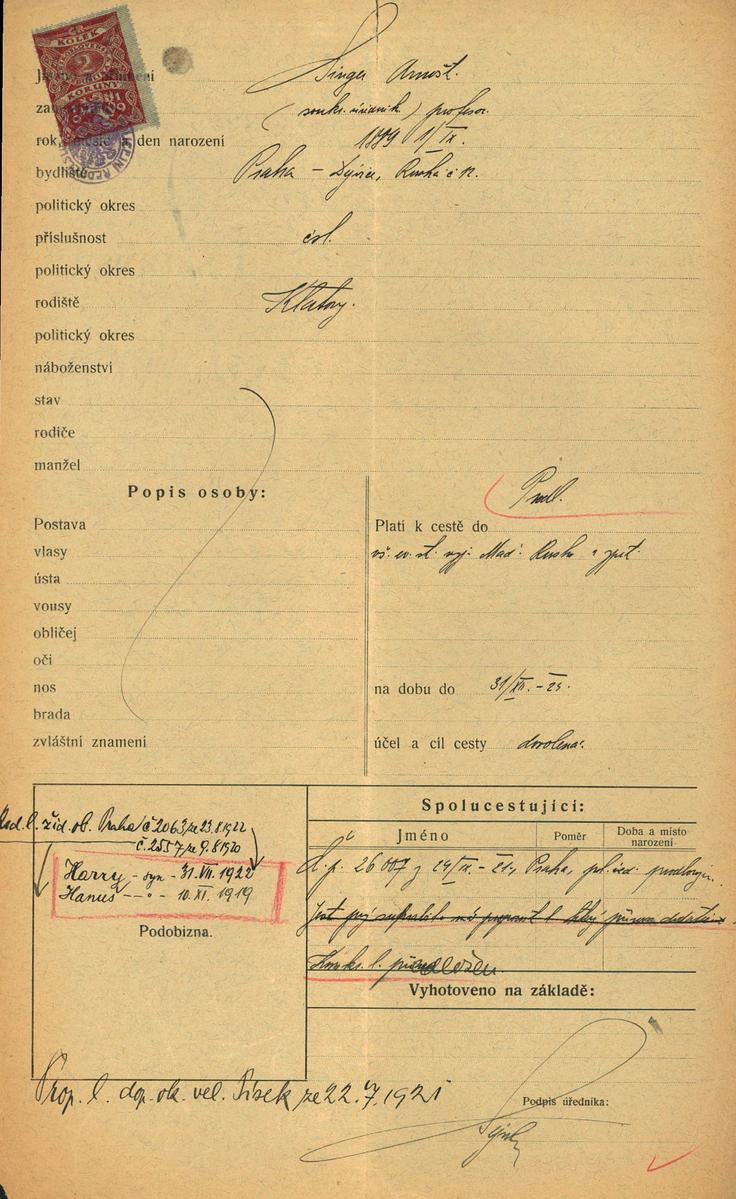 KOLEK
2
KORUNY
Jméno a příjmení Singer Arnošt.
zaměstnání (soukr. úředník) profesor.
rok, měsíc a den narození 1889 1/IX.
bydliště Praha – Dejvice, Ruská č 12.
politický okres
příslušnost čsl.
politický okres
rodiště Klatovy.
politický okres
náboženství
stav
rodiče
manžel
Popis osoby:
Postava
vlasy
ústa
vousy
obličej
oči
nos
brada
zvláštní znamení
Prodl.
Platí k cestě do
vš. ev. st. vyj. Maď. Ruska a zpět.
na dobu do 31/XII.–25.
účel a cíl cesty dovolená.
Rod. l. žid. ob. Praha č 2063 ze 23.8.1922
č. 2557 ze 9.8.1920
Harry – syn – 31.VII.1922
Hanuš – " – 10.XI.1919
Podobizna.
Spolucestující:
Jméno
Poměr
Doba a místo narození
26 007 z Praha, pol. řed.
předložen.
Vyhotoveno na základě:
Prop. l. dop. ok. vel. Písek ze 22.7.1921
Podpis úředníka: